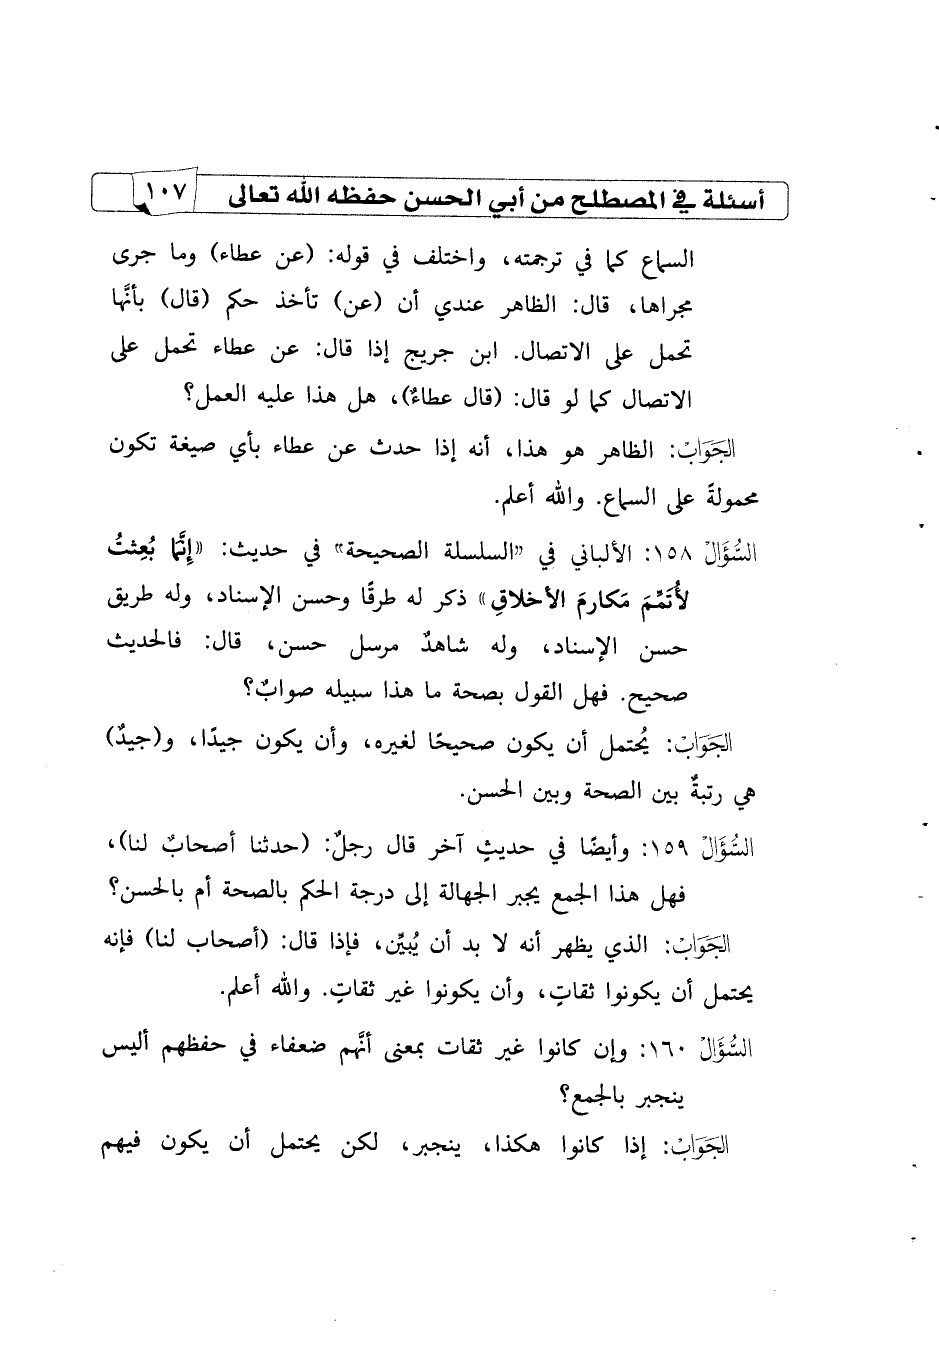 أسئلة في المصطلح من أبي الحسن حفظه الله تعالى ١٠٧
السماع كما في ترجمته، واختلف في قوله: (عن عطاء) وما جرى
مجراها، قال: الظاهر عندي أن (عن) تأخذ حكم (قال) بأنَّها
تحمل على الاتصال. ابن جريج إذا قال: عن عطاء تحمل على
الاتصال كما لو قال: (قال عطاءٌ)، هل هذا عليه العمل؟
الجَوَابُ: الظاهر هو هذا، أنه إذا حدث عن عطاء بأي صيغة تكون
محمولةً على السماع. والله أعلم.
السُّؤَالُ ١٥٨: الألباني في «السلسلة الصحيحة» في حديث: «إِنَّما بُعِثتُ
لأُتمِّمَ مَكارمَ الأخلاقِ» ذكر له طرقًا وحسن الإسناد، وله طريق
حسن الإسناد، وله شاهدٌ مرسل حسن، قال: فالحديث
صحيح. فهل القول بصحة ما هذا سبيله صوابٌ؟
الجَوَابُ: يُحتمل أن يكون صحيحًا لغيره، وأن يكون جيدًا، و(جيدٌ)
هي رتبةٌ بين الصحة وبين الحسن.
السُّؤَالُ ١٥٩: وأيضًا في حديثٍ آخر قال رجلٌ: (حدثنا أصحابٌ لنا)،
فهل هذا الجمع يجبر الجهالة إلى درجة الحكم بالصحة أم بالحسن؟
الجَوَابُ: الذي يظهر أنه لا بد أن يُبيِّن، فإذا قال: (أصحاب لنا) فإنه
يحتمل أن يكونوا ثقاتٍ، وأن يكونوا غير ثقاتٍ. والله أعلم.
السُّؤَالُ ١٦٠: وإن كانوا غير ثقات بمعنى أنَّهم ضعفاء في حفظهم أليس
ينجبر بالجمع؟
الجَوَابُ: إذا كانوا هكذا، ينجبر، لكن يحتمل أن يكون فيهم